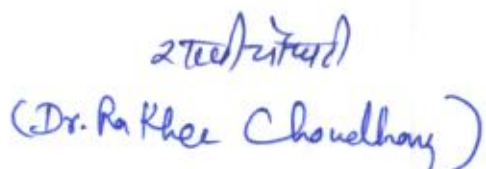 राखी चौधरी
(Dr. Rakhee Choudhary)